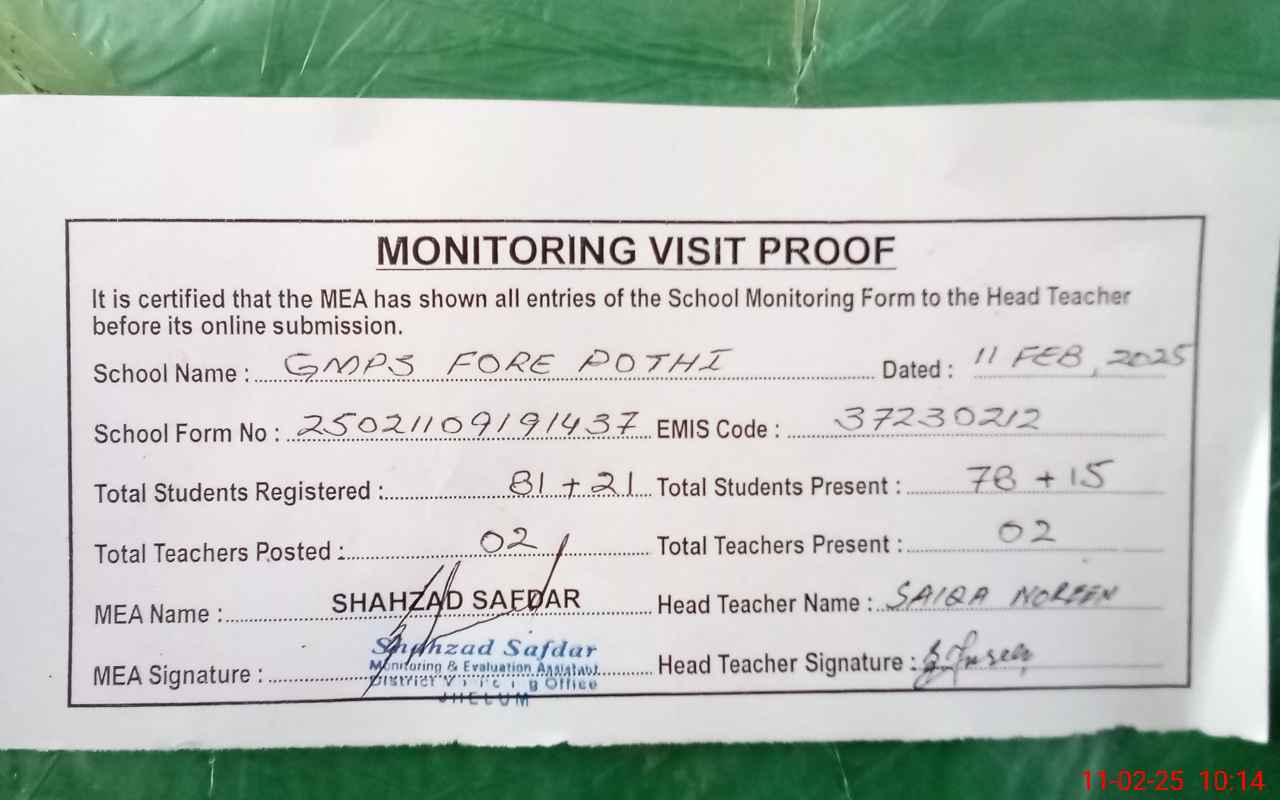 MONITORING VISIT PROOF
It is certified that the MEA has shown all entries of the School Monitoring Form to the Head Teacher
before its online submission.
School Name : GMPS FORE POTHI Dated : 11 FEB, 2025
School Form No : 25021109191437 EMIS Code : 37230212
Total Students Registered : 81 + 21 Total Students Present : 78 + 15
Total Teachers Posted : 02 Total Teachers Present : 02
MEA Name : SHAHZAD SAFDAR Head Teacher Name : SAIQA NOREEN
Shahzad Safdar
Monitoring & Evaluation Assistant
MEA Signature : Head Teacher Signature :
District Office
JHELUM
11-02-25 10:14